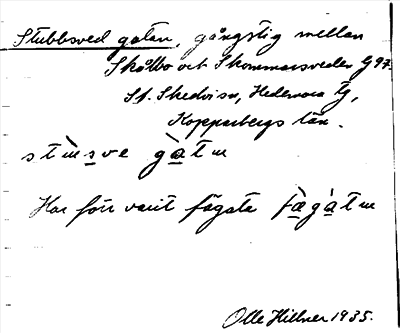 Stubbsved gatan, gångstig mellan
Skålbo och Skommarsveden G 97.
St. Skedvi sn, Hedemora tg,
Kopparbergs län.
gàtm
Har förr varit fägata fägàtm
Olle Hillner 1935.